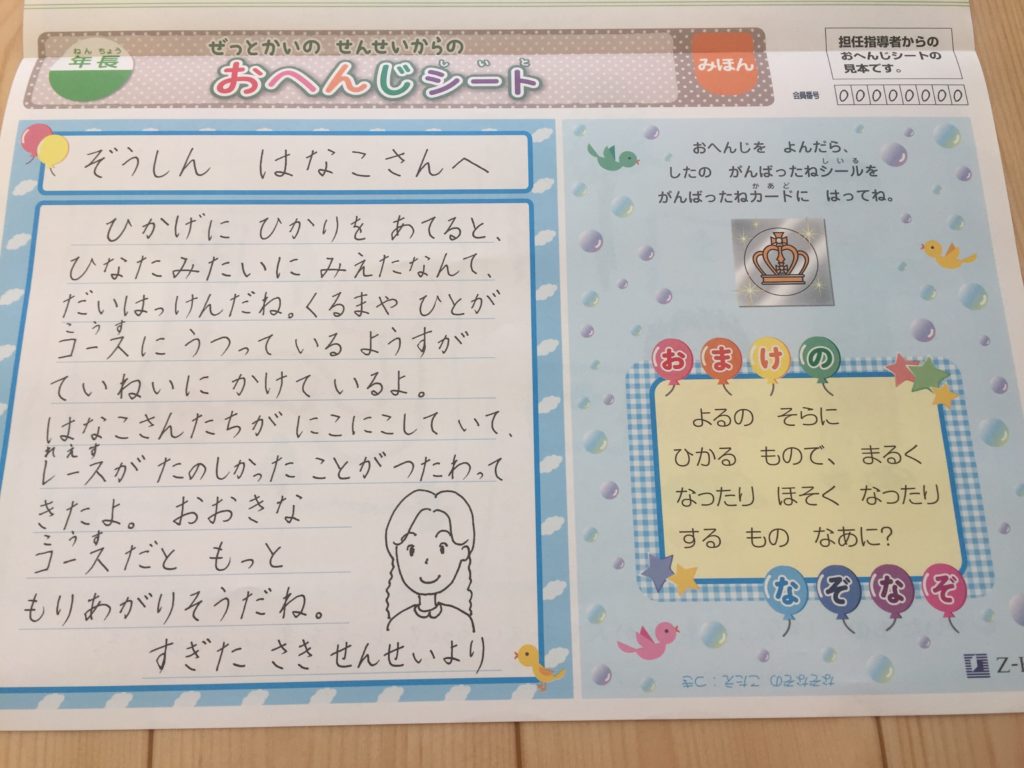 ねんちょう
年長
ぜっとかいの せんせいからの
しいと
おへんじシート
みほん
担任指導者からの
おへんじシートの
見本です。
会員番号 00000000
ぞうしん はなこさんへ
ひかげに ひかりを あてると、
ひなたみたいに みえたなんて、
だいはっけんだね。くるまや ひとが
こうす
コースに うつって いる ようすが
ていねいに かけて いるよ。
はなこさんたちが にこにこして いて、
れえす
レースが たのしかった ことが つたわって
きたよ。 おおきな
こうす
コースだと もっと
もりあがりそうだね。
すぎた さき せんせいより
おへんじを よんだら、
しいる
したの がんばったねシールを
かあど
がんばったねカードに はってね。
おまけの
よるの そらに
ひかる もので、 まるく
なったり ほそく なったり
する もの なあに?
なぞなぞ
なぞなぞの こたえ:つき